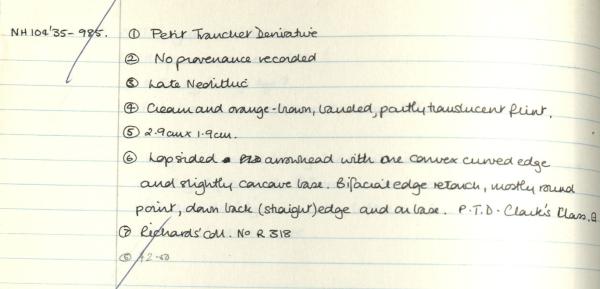 NH 104'35-985. ① Petit Trancher Derivative
② No provenance recorded
③ Late Neolithic
④ Cream and orange-brown, banded, partly translucent flint.
⑤ 2.9cm x 1.9cm.
⑥ Lopsided arrowhead with one convex curved edge
and slightly concave base. Bifacial edge retouch, mostly round
point, down back (straight) edge and on base. P.T.D. Clark's Class.
⑦ Richards' Coll. No R 318
⑧ 2-50